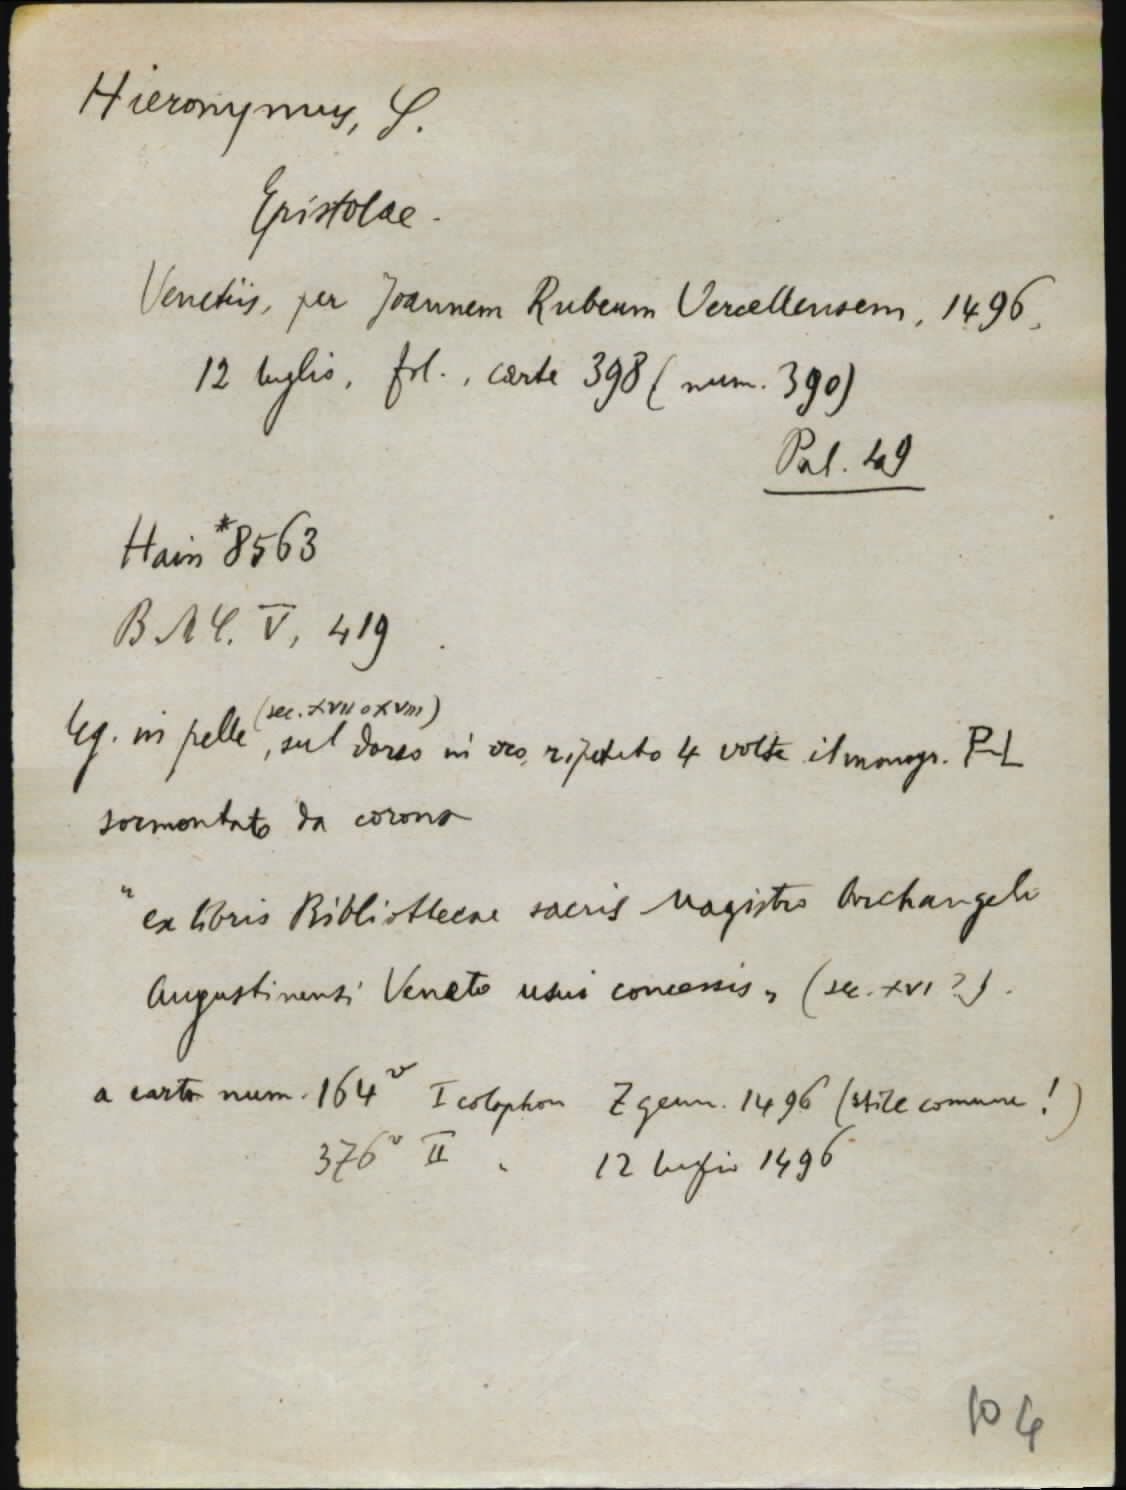 Hieronymus, S.
Epistolae.
Venetiis, per Joannem Rubeum Vercellensem, 1496,
12 luglio, fol., carte 398 (num. 390)
Pal. 49
Hain *8563
B M C. V, 419
(sec. XVII o XVIII)
leg. in pelle, sul dorso in oro, ripetuto 4 volte il monogr. PL
sormontato da corona
"ex libris Bibliothecae sacris Magistro Archangelo
Augustinensi Veneto usui concessis" (sec. XVI?).
a carta num. 164v I colophon 7 genn. 1496 (stile comune!)
376v II " 12 luglio 1496
104